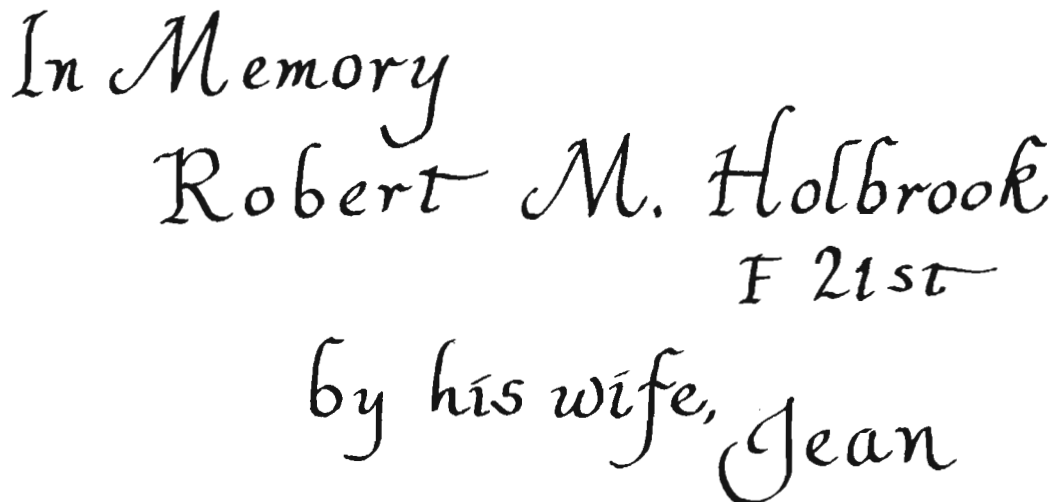 In Memory
Robert M. Holbrook
F 21st
by his wife, Jean